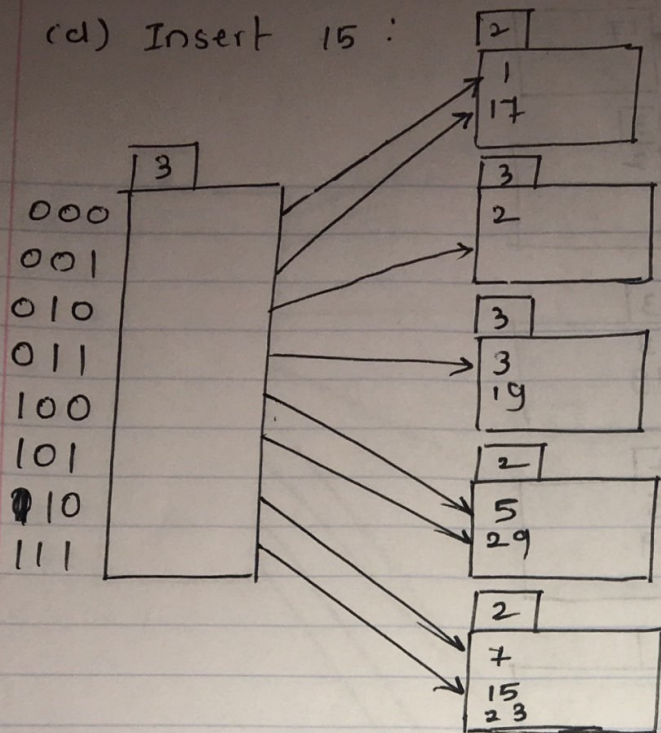 (d) Insert 15 :
3
000
001
010
011
100
101
110
111
2
1
17
3
2
3
3
19
2
5
29
2
7
15
23